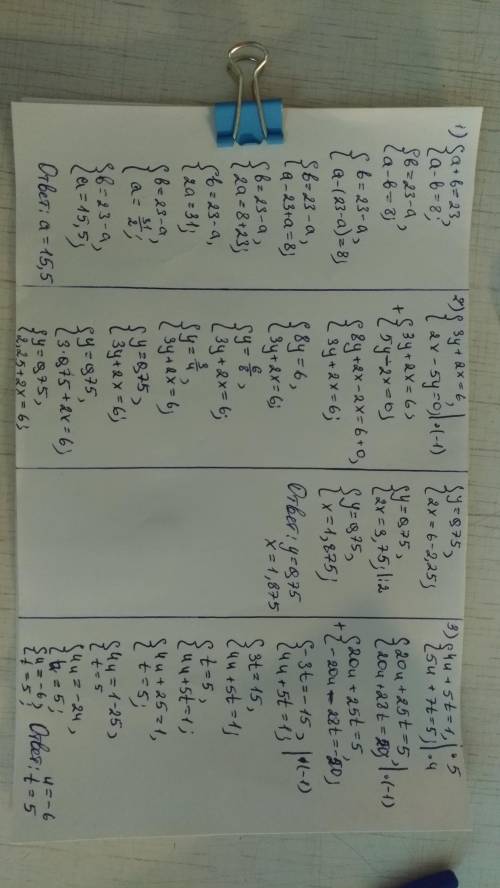 1) {a+b=23,
{a-b=8;
{b=23-a,
{a-b=8;
{b=23-a,
{a-(23-a)=8;
{b=23-a,
{a-23+a=8;
{b=23-a,
{2a=8+23;
{b=23-a,
{2a=31;
{b=23-a,
{a=31/2;
{b=23-a,
{a=15,5;
Ответ: a=15,5
2) {3y+2x=6,
{2x-5y=0;|·(-1)
+{3y+2x=6,
{5y-2x=0;
{8y+2x-2x=6+0,
{3y+2x=6;
{8y=6,
{3y+2x=6;
{y=6/8,
{3y+2x=6;
{y=3/4,
{3y+2x=6;
{y=0,75,
{3y+2x=6;
{y=0,75,
{3·0,75+2x=6;
{y=0,75,
{2,25+2x=6;
{y=0,75,
{2x=6-2,25;
{y=0,75,
{2x=3,75;|:2
{y=0,75,
{x=1,875;
Ответ: y=0,75
x=1,875
3) {4u+5t=1,|·5
{5u+7t=5;|·4
{20u+25t=5,
{20u+28t=20;|·(-1)
+{20u+25t=5,
{-20u-28t=-20;
{-3t=-15,|·(-1)
{4u+5t=1;
{3t=15,
{4u+5t=1;
{t=5,
{4u+5t=1;
{4u+25=1,
{t=5;
{4u=1-25,
{t=5
{4u=-24,
{t=5;
{u=-6,
{t=5;
Ответ: u=-6
t=5